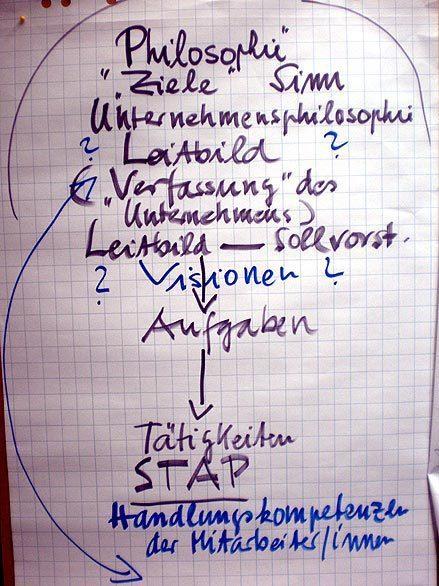 Philosophie"
"Ziele" Sinn
Unternehmensphilosophie
? Leitbild ?
("Verfassung" des
Unternehmens)
Leitbild — Sollvorst.
? Visionen ?
Aufgaben
Tätigkeiten
STAP
Handlungskompetenzen
der Mitarbeiter/innen